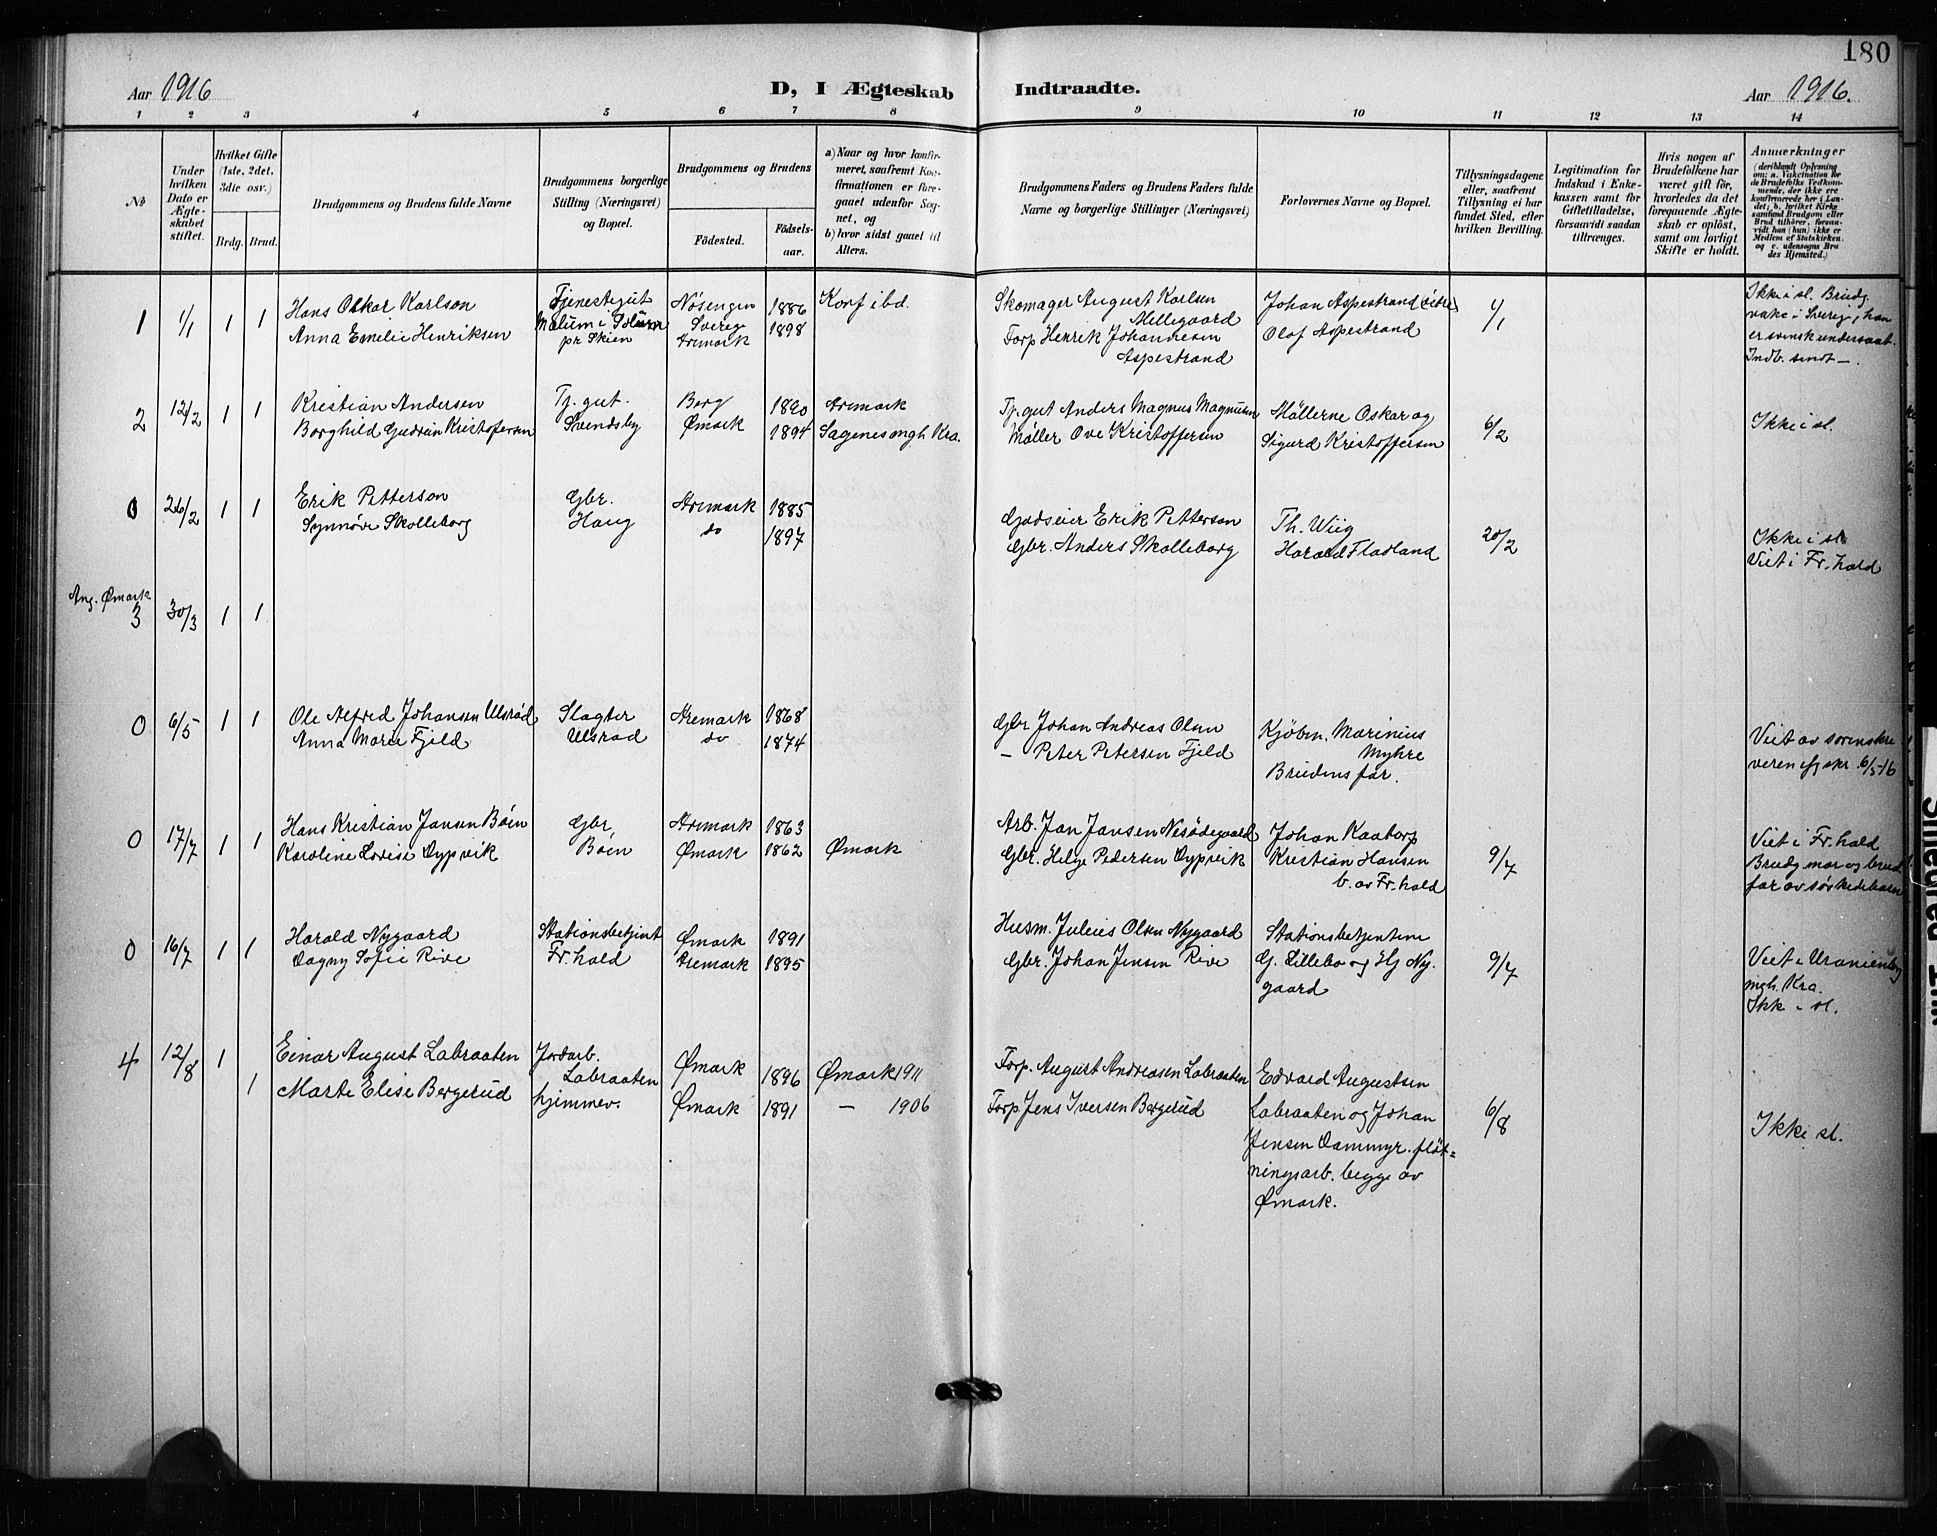 180
Aar 1916
D, I Ægteskab Indtraadte.
Aar 1916.
1 2 3 4 5 6 7 8 9 10 11 12 13 14
№
Under hvilken Dato er Ægteskabet stiftet.
Hvilket Gifte (1ste, 2det, 3die osv.)
Brdg. Brud.
Brudgommens og Brudens fulde Navne
Brudgommens borgerlige Stilling (Næringsvei) og Bopæl.
Brudgommens og Brudens
Fødested.
Fødselsaar.
a) Naar og hvor konfirmeret, saafremt Konfirmationen er foregaaet udenfor Sognet, og
b) hvor sidst gaaet til Alters.
Brudgommens Faders og Brudens Faders fulde Navne og borgerlige Stillinger (Næringsvei)
Forlovernes Navne og Bopæl.
Tillysningsdagene eller, saafremt Tillysning ei har fundet Sted, efter hvilken Bevilling.
Legitimation for Indskud i Enkekassen samt for Giftetilladelse, forsaavidt saadan tiltrænges.
Hvis nogen af Brudefolkene har været gift før, hvorledes da det foregaaende Ægteskab er opløst, samt om lovligt Skifte er holdt.
Anmærkninger
(deriblandt Oplysning om: a. Vakcination for de Brudefolks Vedkommende, der ikke ere konfirmerede her i Landet; b. hvilket Kirkesamfund Brudgom eller Brud tilhører, forsaavidt han (hun) ikke er Medlem af Statskirken. og c. udensogns Brudes Hjemsted.)
1 1/1 1 1
Hans Oskar Karlson
Anna Emelie Henriksen
Tjenestegut
Melum i Solum
pr Skien
Nøsengen
Sverig
Aremark
1886
1898
Konf ibd.
Skomager August Karlsen
Mellegaard
Torp Henrik Johannesen
Aspestrand
Johan Aspestrand
Olof Aspestrand
1/1
Ikke i sl. Brudg.
vakc i Sverig, han
er svensk undersaat.
Indb. sendt —.
2 12/2 1 1
Kristian Andersen
Borghild Gudrun Kristofersen
Tj. gut.
Svendsby
Berg
Ømark
1890
1894
Aremark
Sagenes mgh Kra.
Tj. gut Anders Magnus Magnusen
Møller Ove Kristoffersen
Møllerne Oskar og
Sigurd Kristoffersen
6/2
Ikke i sl.
0 26/2 1 1
Erik Petterson
Synnøve Skolleborg
Gbr.
Haug
Aremark
do
1885
1897
Godseier Erik Petterson
Gbr. Anders Skolleborg
Th. Wiig
Harald Fladland
20/2
Ikke i sl
Viet i Fr.hald
Ang. Ømark
3 30/3 1 1
0 6/5 1 1
Ole Alfred Johansen Ulsrød
Anna Marie Fjeld
Slagter
Ulsrød
Aremark
do
1868
1874
Gbr Johan Andreas Olsen
— Peter Petersen Fjeld
Kjøbm. Marinius
Myhre
Brudens far.
Viet av sorenskri
veren efg skr 6/5-16
0 17/7 1 1
Hans Kristian Jansen Bøen
Karoline Lovise Dypvik
Gbr,
Bøen
Aremark
Ømark
1863
1862
Ømark
Arb. Jan Jansen Nesødegaard
Gbr. Helge Pedersen Dypvik
Johan Kaatorp
Kristian Hansen
b. av Fr.hald
9/7
Viet i Fr.hald
Brudg mor og brud
far av søskedebarn
0 16/7 1 1
Harald Nygaard
Dagny Sofie Rive
Stationsbetjent
Fr.hald
Ømark
Aremark
1891
1895
Husm. Julius Olsen Nygaard
Gbr. Johan Jensen Rive
Stationsbetjentene
G. Lillebo og Hj Ny.
gaard
9/7
Viet i Uranienborg
mgh. Kra.
Ikk i sl.
4 12/8 1 1
Einar August Labraaten
Marte Elise Bergerud
Jordarb.
Labraaten
hjemmev.
Ømark
Ømark
1896
1891
Ømark 1911
— 1906
Torp. August Andreasen Labraaten
Torp Jens Iversen Bergerud
Edvard Augustsen
Labraaten og Johan
Jensen Dammyr. fløt=
ningsarb. begge av
Ømark.
6/8
Ikke i sl.